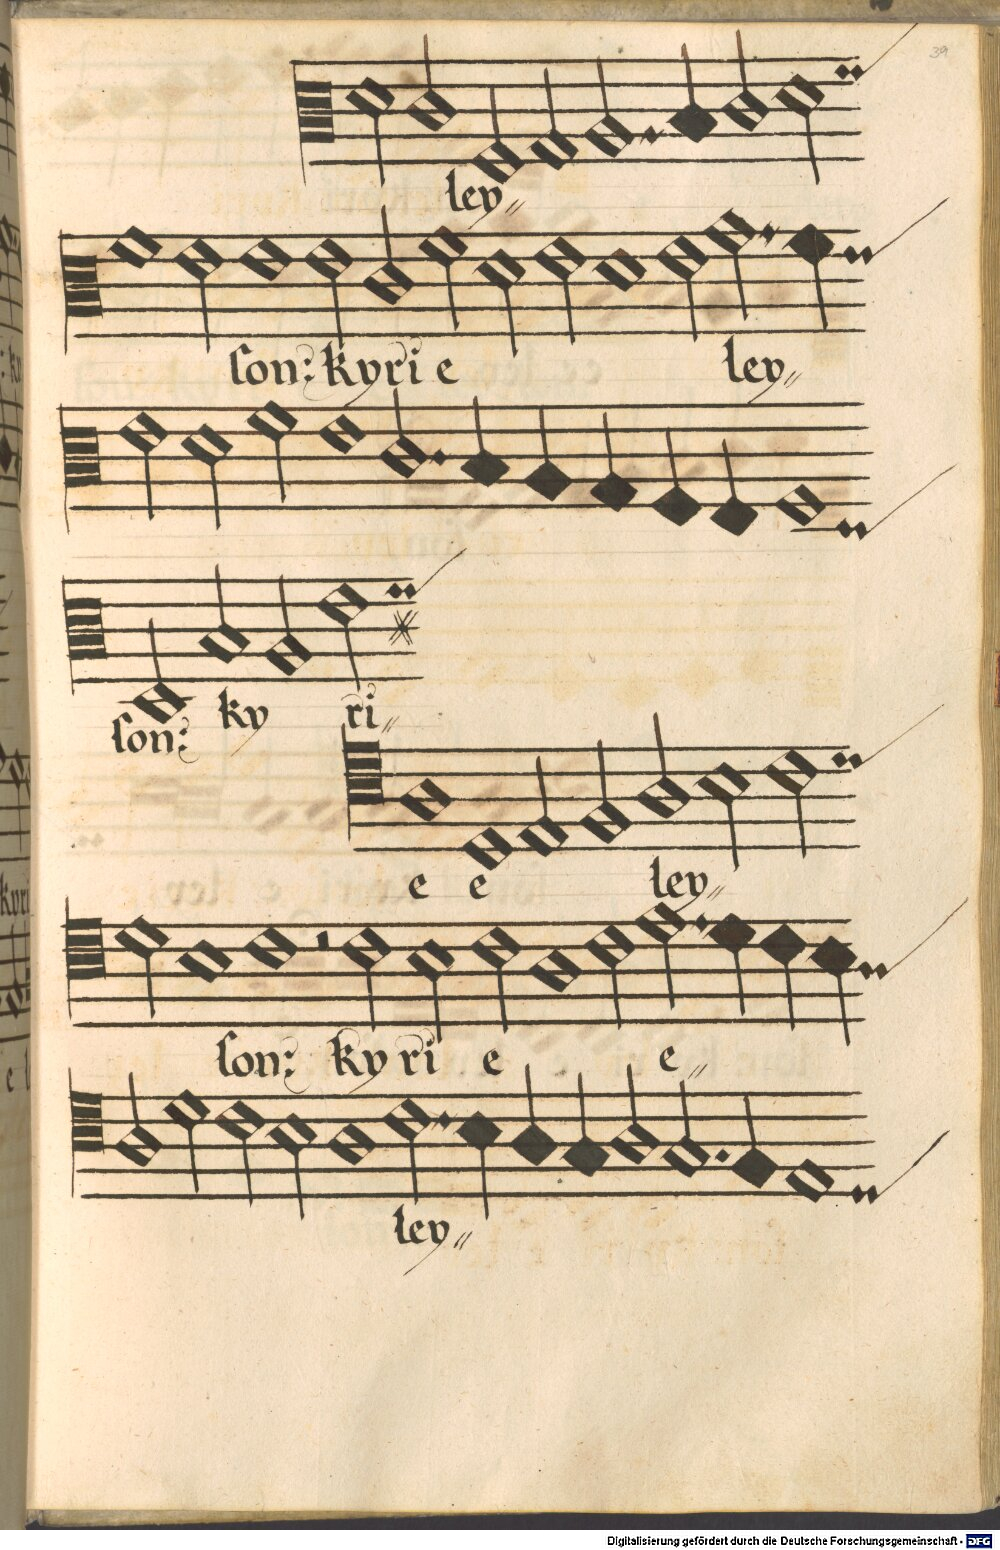 39
ley〃
son: kyri e ley〃
son: ky ri〃
e e ley〃
son: kyri e e〃
ley〃
Digitalisierung gefördert durch die Deutsche Forschungsgemeinschaft - DFG